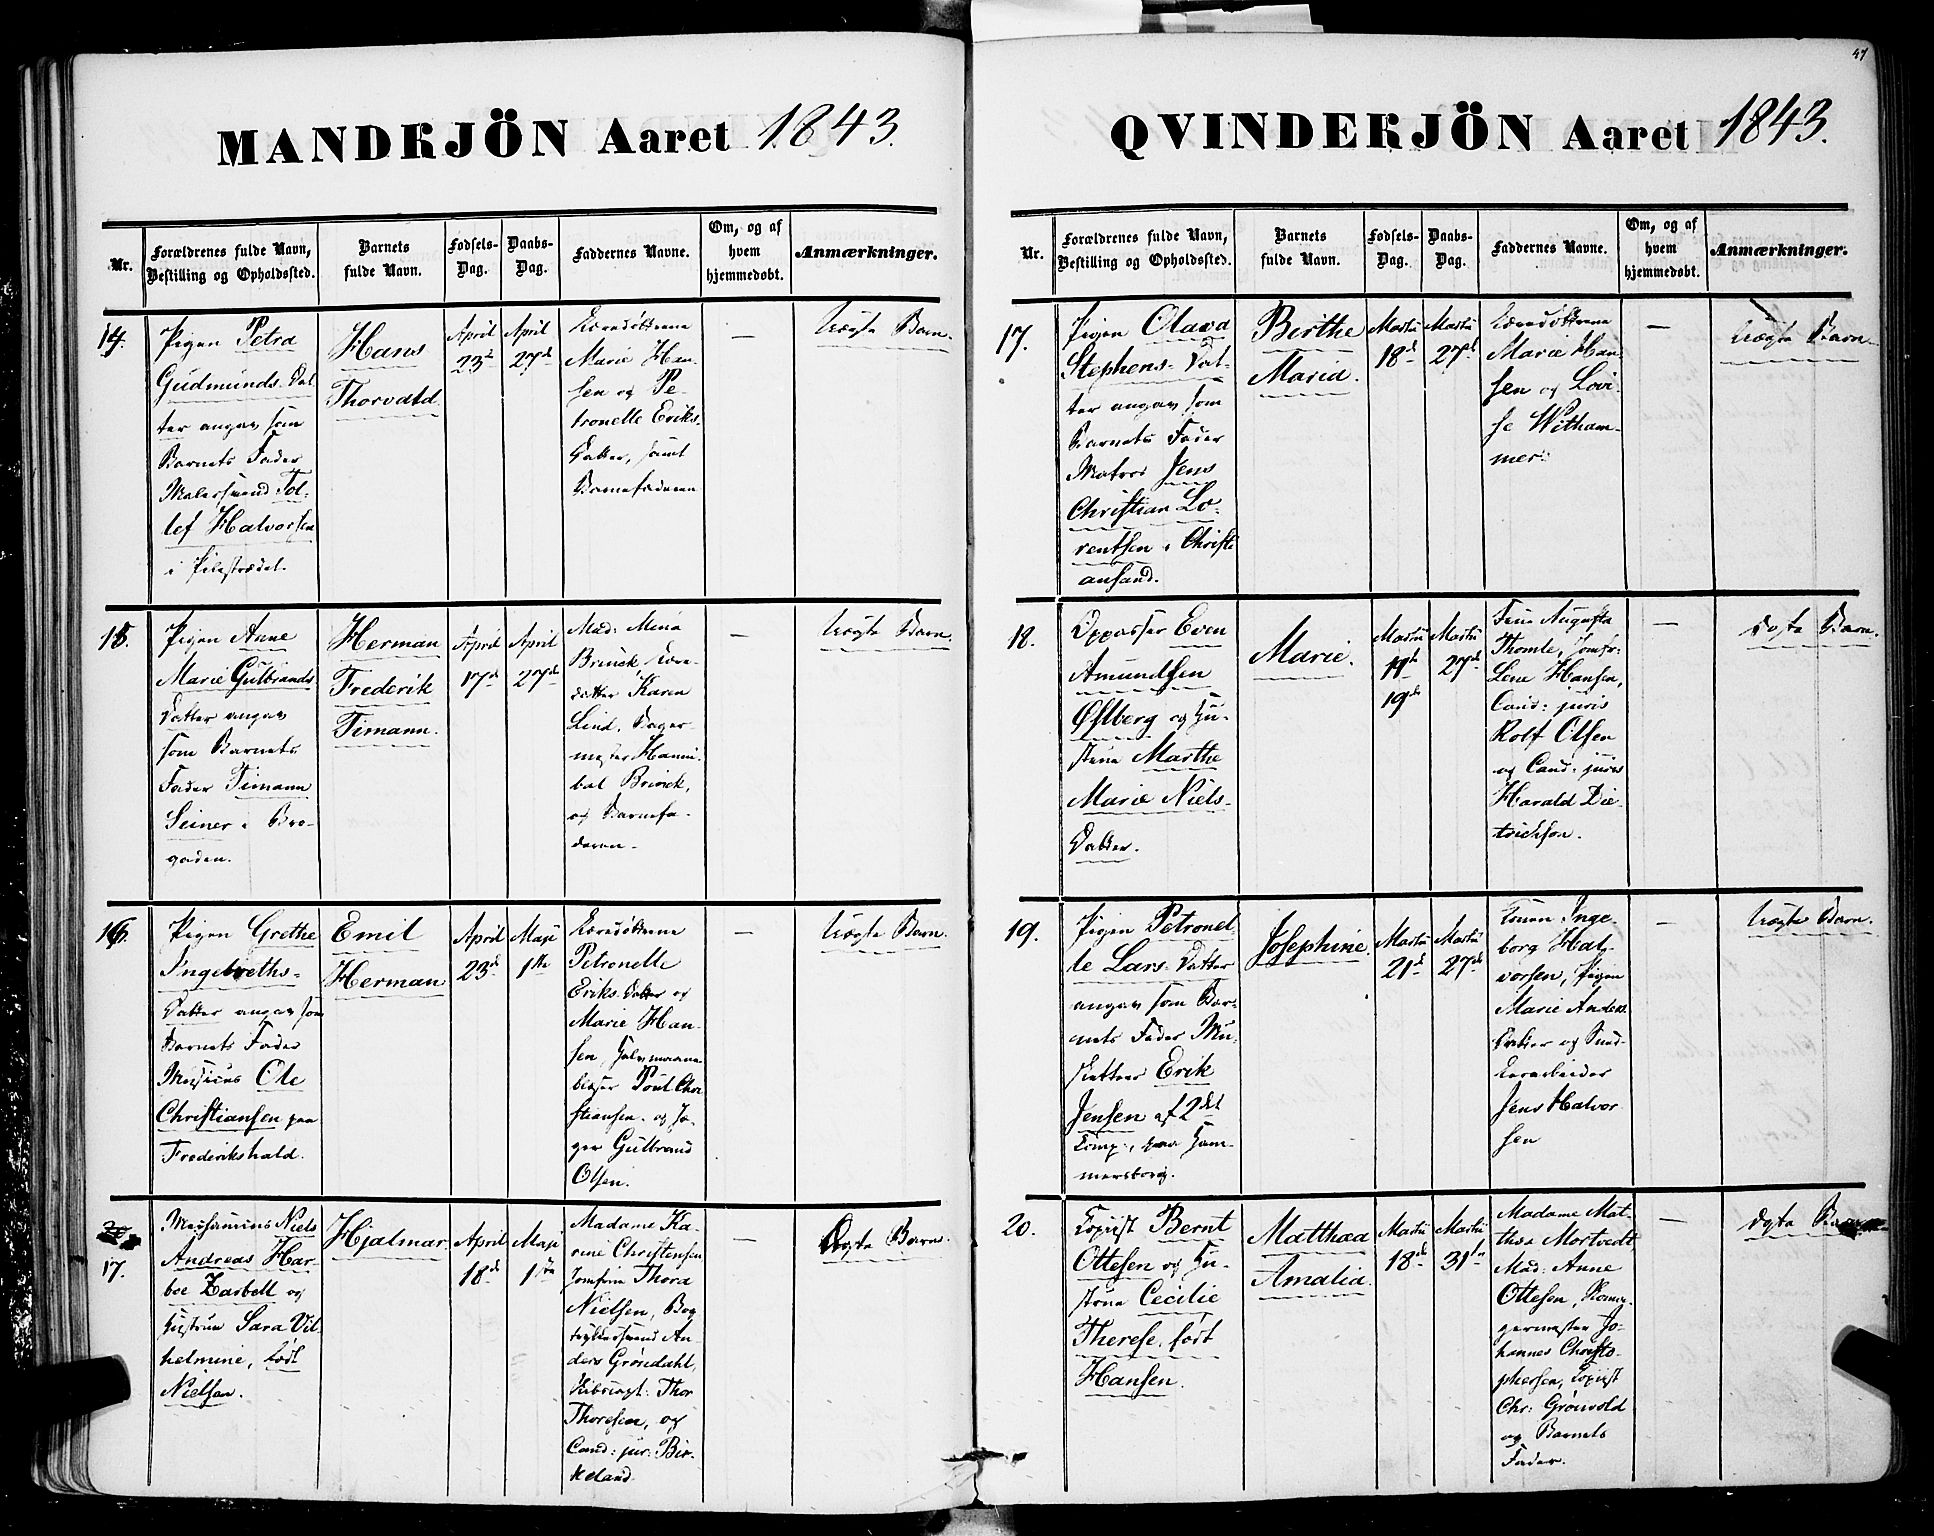 MANDKJÖN Aaret 1843.
Nr.
Forældrenes fulde Navn,
Bestilling og Opholdssted.
Barnets
fulde Navn.
Fødsels-
Dag.
Daabs-
Dag.
Faddernes Navne.
Om, og af
hvem
hjemmedøbt.
Anmærkninger.
14.
Pigen Petra
Gudmunds-Dat-
ter angav som
Barnets Fader
Malersvend Tol-
lef Halvorsen
i Pilestrædet.
Hans
Thorvald
April
23d
April
27de
Marie Han-
sen og Pe-
tronelle Eriks-
Datter, samt
Barnefaderen
—
Uægte Barn.
15.
Pigen Anne
Marie Gulbrands
Datter angav
som Barnets
Fader Timann
Seiner i Bro-
gaden.
Herman
Frederik
Timann.
April
17de
April
27de
Mad: Mina
Brinck,
datter Karen
Lind, Bager-
mester Hanni-
bal Brinck,
og Barnefa-
deren.
—
Uægte Barn.
16.
Pigen Grethe
Ingebreths-
Datter angav som
Barnets Fader
Musicus Ole
Christiansen paa
Frederikshald.
Emil
Herman
April
23d
Maji
1ste
Petronelle
Eriks-Datter og
Marie Han-
sen,
blæser Poul Chri
stiansen og Jæ-
ger Gulbrand
Olsen.
—
Uægte Barn.
17.
Niels
Andreas Har-
boe Zarbell og
Hustrue Sara Vil-
helmine, født
Nielsen.
Hjalmar.
April
18de
Maji
1ste
Madame Ka-
rine Christensen
Jomfrue Thora
Nielsen, Bog-
trykkersvend An-
ders Gröndahl,
Thor
Thoresen, og
Cand: jur: Bir-
keland.
—
Ægte Barn.
47
QVINDERJÖN Aaret 1843.
Nr.
Forældrenes fulde Navn,
Bestilling og Opholdssted.
Barnets
fulde Navn.
Fødsels-
Dag.
Daabs-
Dag.
Faddernes Navne.
Om, og af
hvem
hjemmedøbt.
Anmærkninger.
17.
Pigen Olava
Stephens-Dat-
ter angav som
Barnets Fader
Matros Jens
Christian Lo-
rentsen i Christi
ansand.
Birthe
Maria.
Martii
18de
Martii
27de
Marie Han-
sen og Lovi-
se Witham-
mer.
—
Uægte Barn.
18.
Oppasser Even
Amundsen
Østberg og Hu-
strue Marthe
Marie Niels-
Datter.
Marie.
Martii
19de
Martii
27de
Frue Augusta
Thomle, Jomfr:
Lene Hansen,
Cand: juris
Rolf Olsen
og Cand: juris
Harald Die-
trichson.
—
Ægte Barn.
19.
Pigen Petronel-
le Lars-Datter
angav som Bar-
nets Fader Mu-
sketteer Erik
Jensen af 2det
Comp., paa Ham-
mersborg.
Josephine.
Martii
21de
Martii
27de
Konen Inge-
borg Hal-
vorsen, Pigen
Marie Anders-
Datter og
Jens Halvor
sen
—
Uægte Barn.
20.
Copist Bernt
Ottesen og Hu-
strue Cecilie
Therese, født
Hansen.
Matthæa
Amalia.
Martii
18de
Martii
31te
Madame Mat-
thea Mortvedt
Mad: Anne
Ottesen,
germester Jo-
hannes Christo-
phersen, Copist
Chr: Grönvold
og Barnets
Fader.
—
Ægte Barn